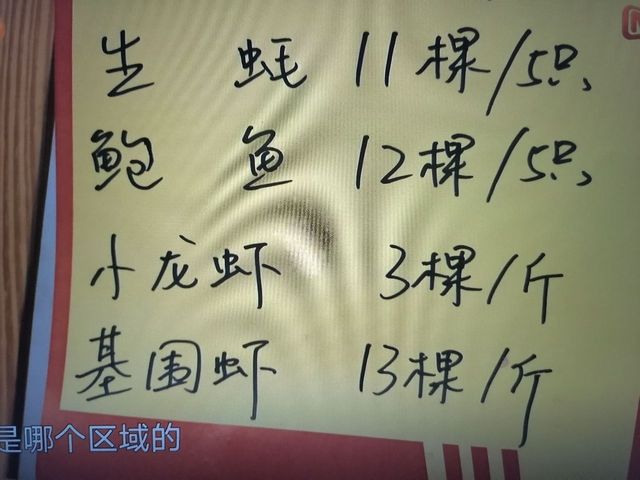 生蚝 11棵/只
鲍鱼 12棵/只
小龙虾 3棵/斤
基围虾 13棵/斤
是哪个区域的